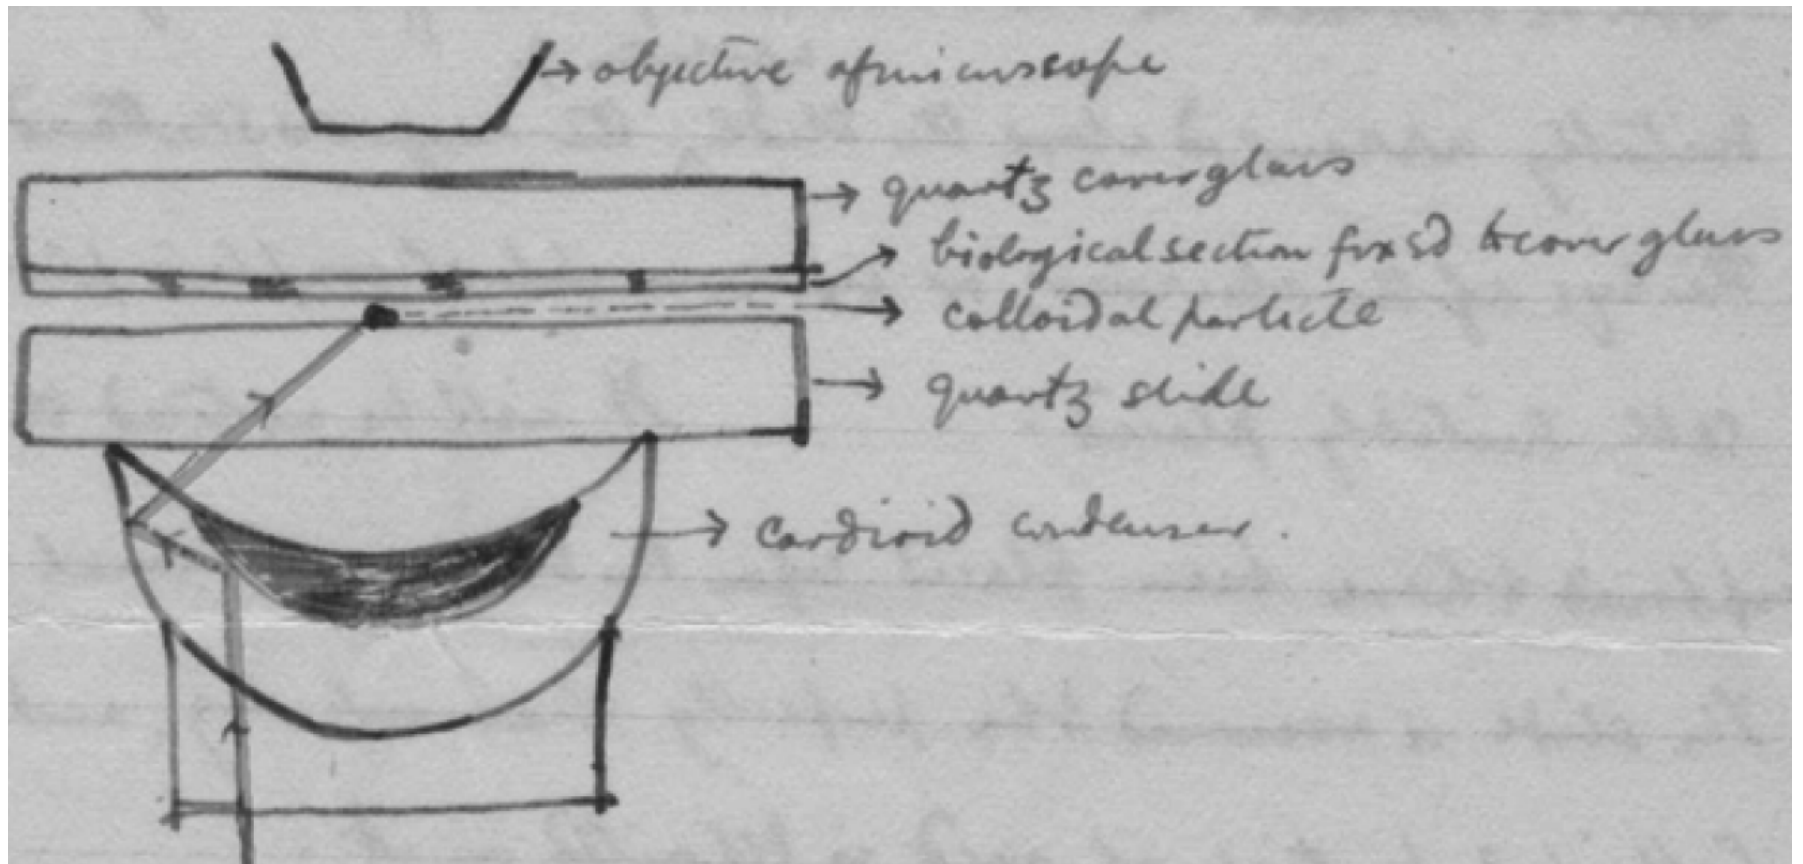 objective of microscope
quartz coverglass
biological section fixed to cover glass
colloidal particle
quartz slide
cardioid condenser.